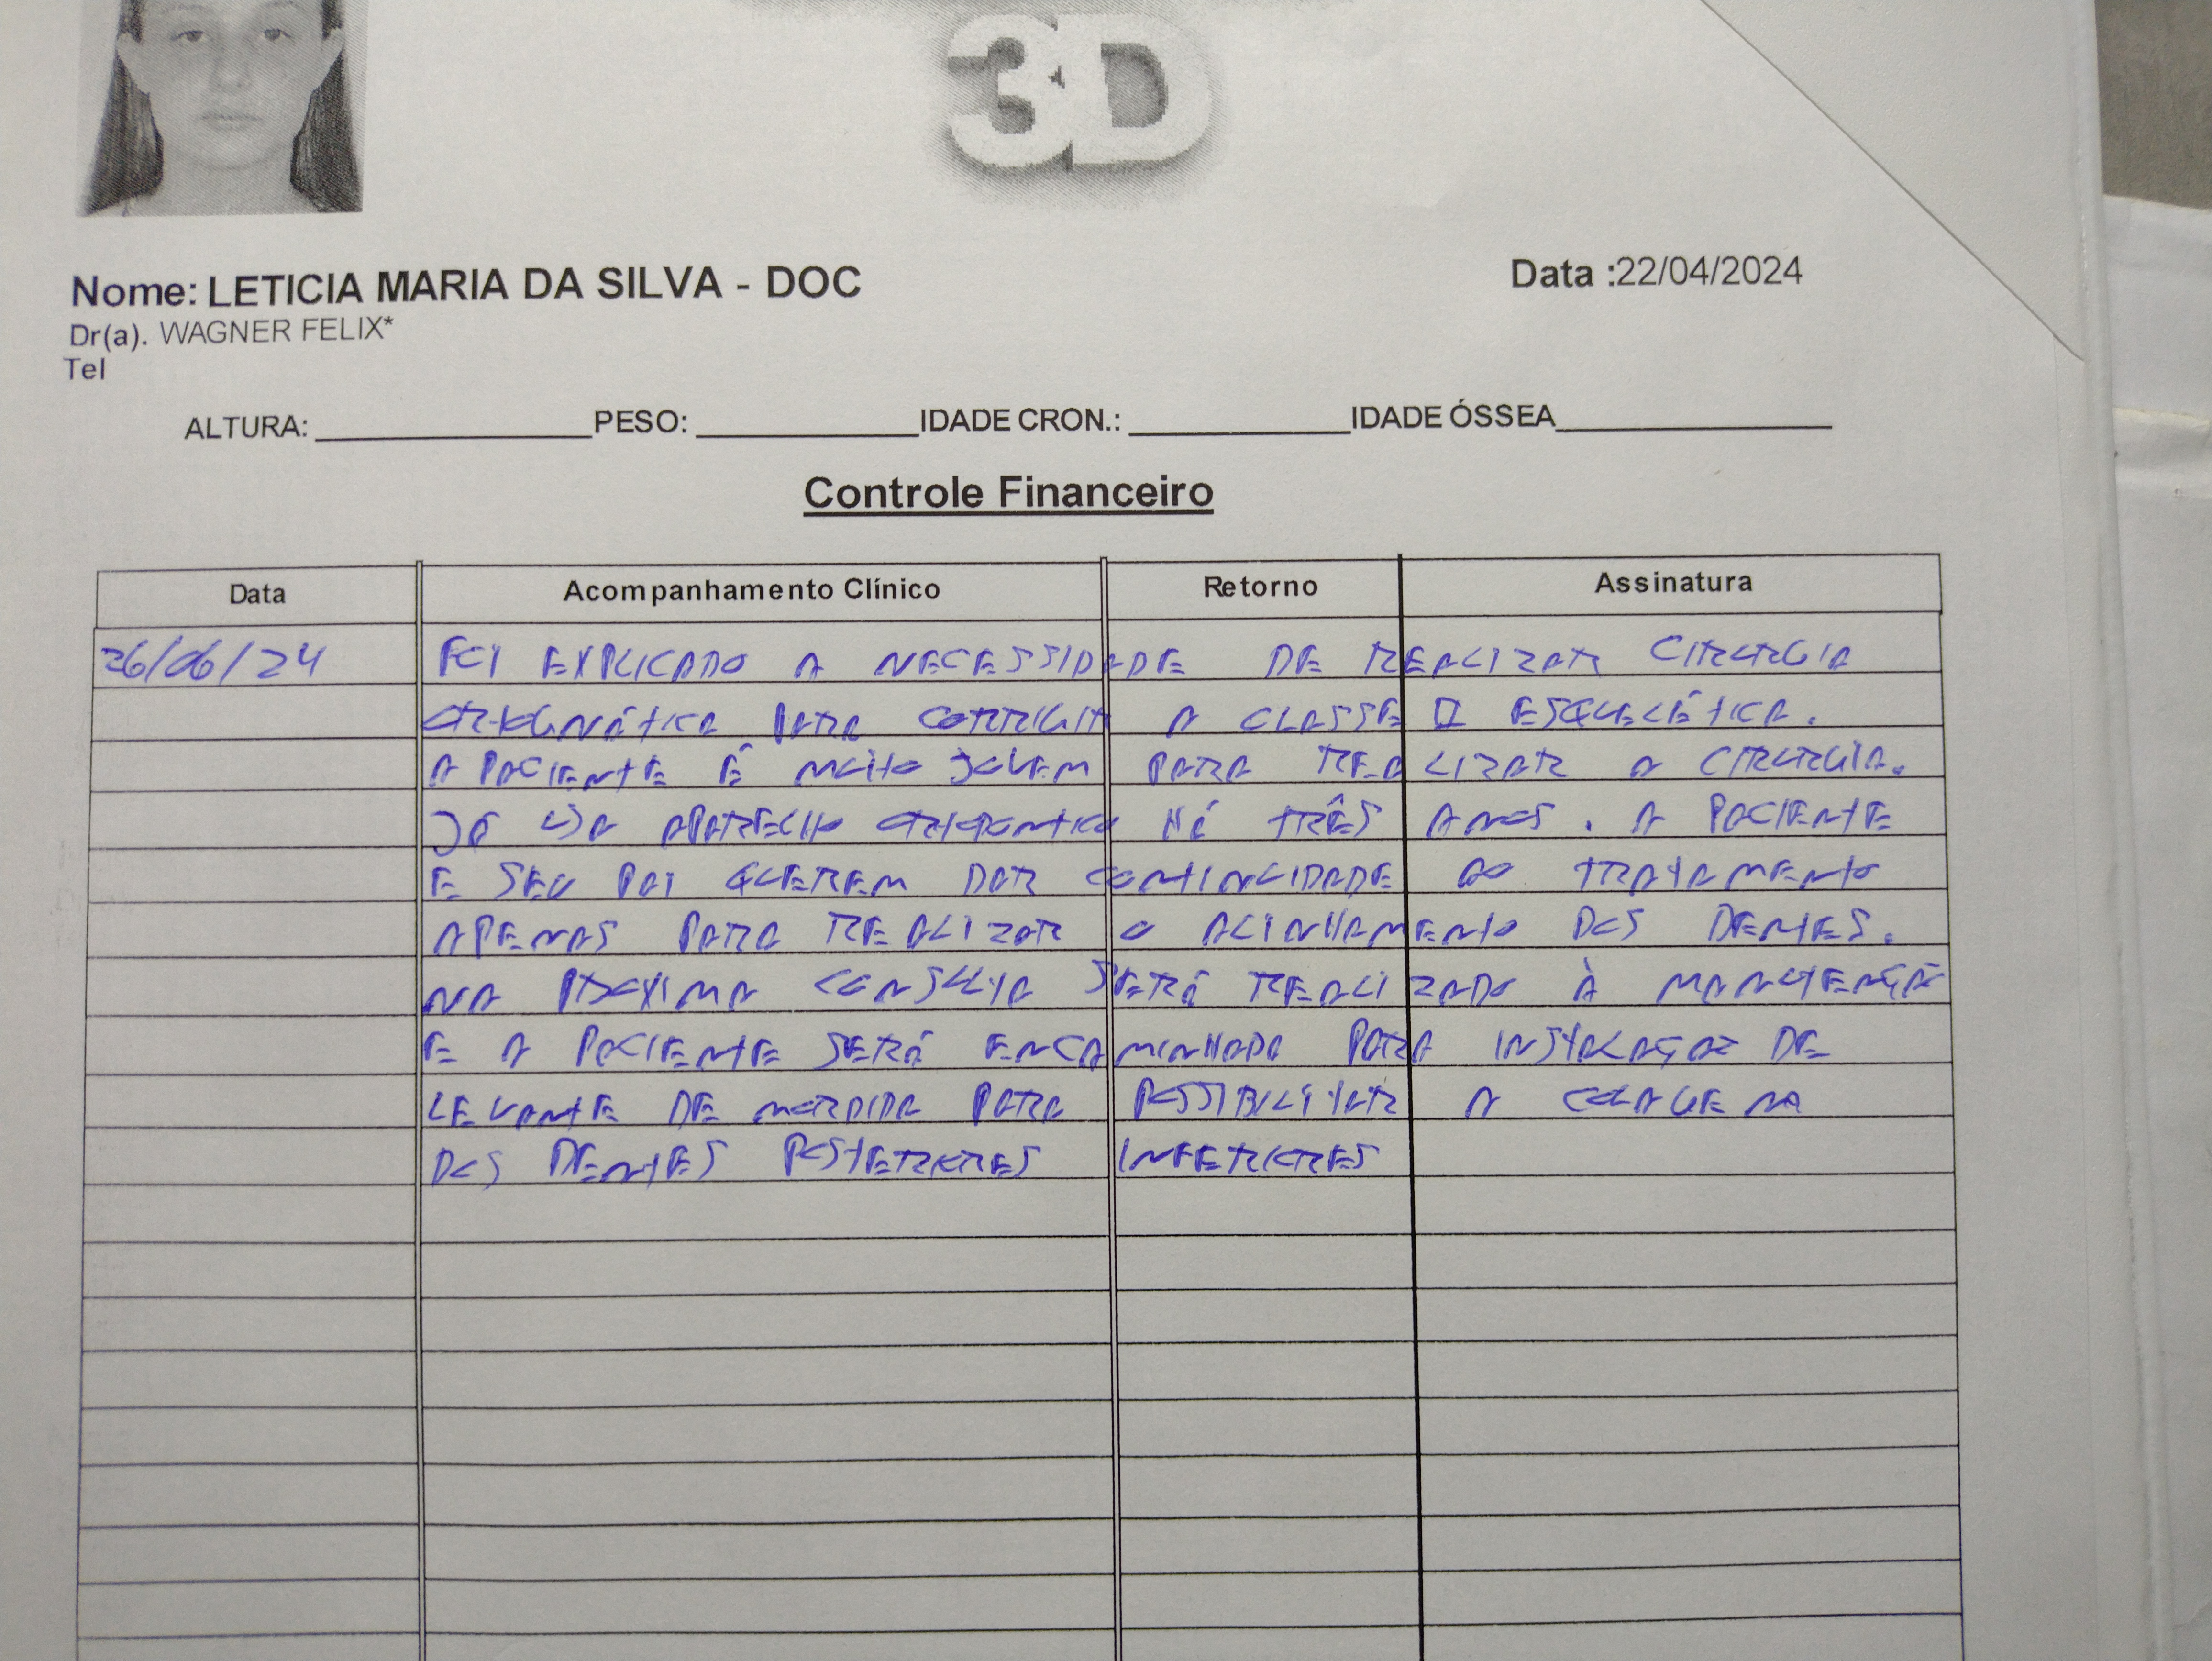 3D
Nome: LETICIA MARIA DA SILVA - DOC
Data :22/04/2024
Dr(a). WAGNER FELIX*
Tel
ALTURA: PESO: IDADE CRON.: IDADE ÓSSEA
Controle Financeiro
Data Acompanhamento Clínico Retorno Assinatura
26/06/24 FOI EXPLICADO A NECESSIDADE DE REALIZAR CIRURGIA
ORTOGNÁTICA PARA CORRIGIR A CLASSE II ESQUELÉTICA.
A PACIENTE É MUITO JOVEM PARA REALIZAR A CIRURGIA.
JÁ USA APARELHO ORTODONTICO HÁ TRÊS ANOS. A PACIENTE
E SEU PAI QUEREM DAR CONTINUIDADE AO TRATAMENTO
APENAS PARA REALIZAR O ALINHAMENTO DOS DENTES.
NA PRÓXIMA CONSULTA SERÁ REALIZADO À MANUTENÇÃO
E A PACIENTE SERÁ ENCAMINHADA PARA INSTALAÇÃO DE
LEVANTE DE MORDIDA PARA POSSIBILITAR A COLAGEM
DOS DENTES POSTERIORES INFERIORES